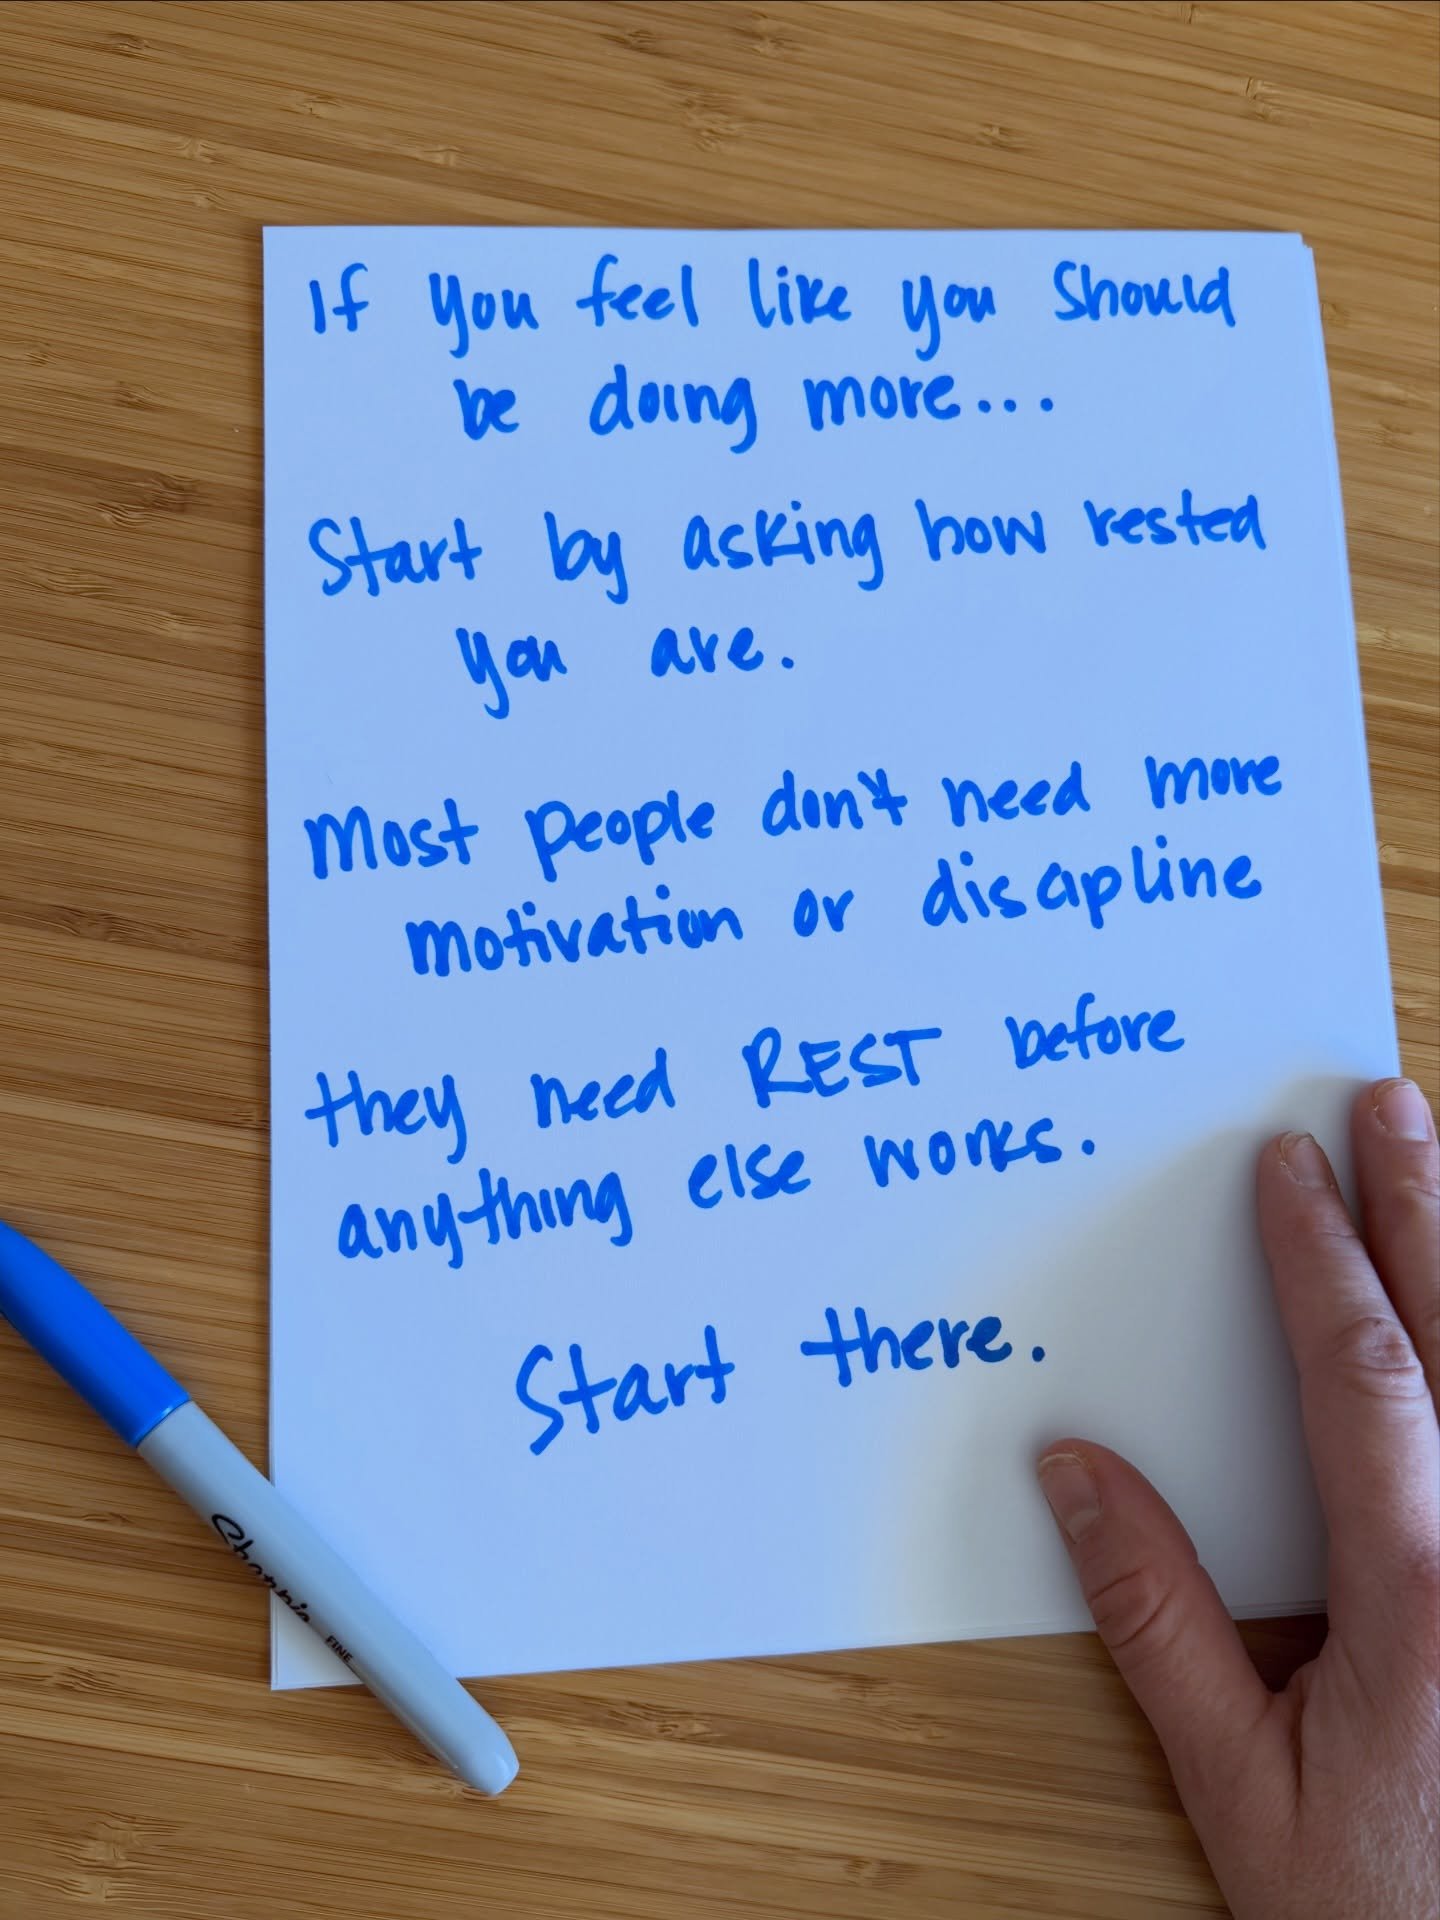 If you feel like you should
be doing more...
Start by asking how rested
you are.
Most people don't need more
motivation or discipline
they need REST before
anything else works.
Start there.
Sharpie
FINE